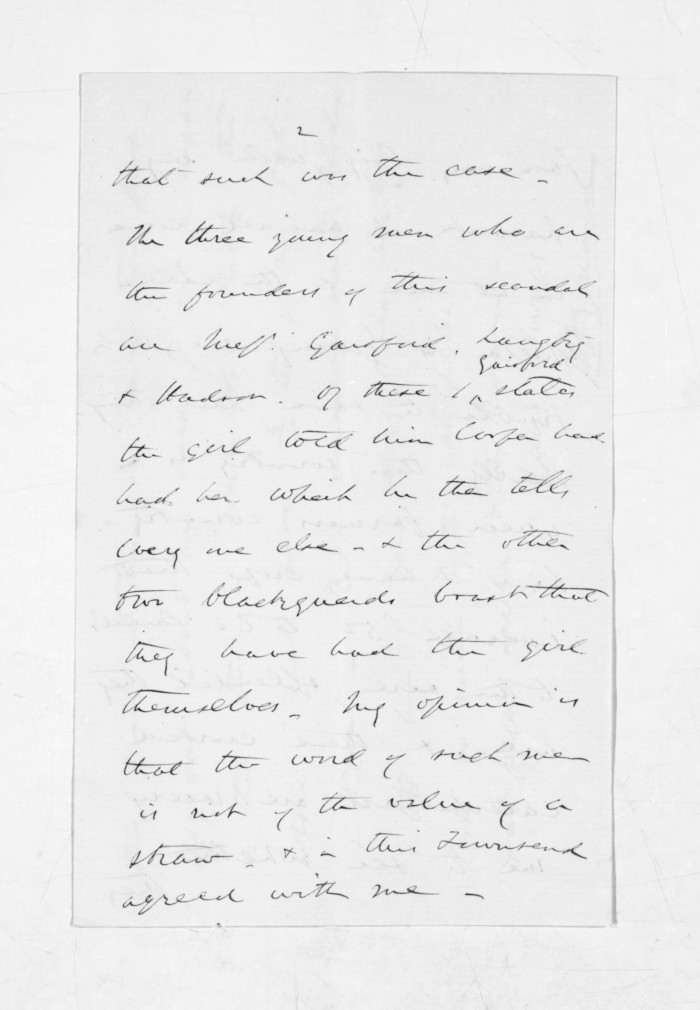 2
that such was the case -
The three young men who are
the founders of this scandal
are Messrs. Gaisford, Langtry
Gaisford
& Hudson. Of these 1 ^ states
the girl told him Cooper had
had her which he then tells
every one else - & the other
two blackguards boast that
they have had the girl
themselves - My opinion is
that the word of such men
is not of the value of a
straw - & in this Townsend
agreed with me -